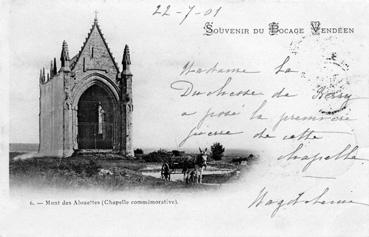 22-7-01
SOUVENIR DU BOCAGE VENDÉEN
Madame La
Duchesse de
a posé la première
pierre de cette
chapelle
6. – Mont des Alouettes (Chapelle commémorative).